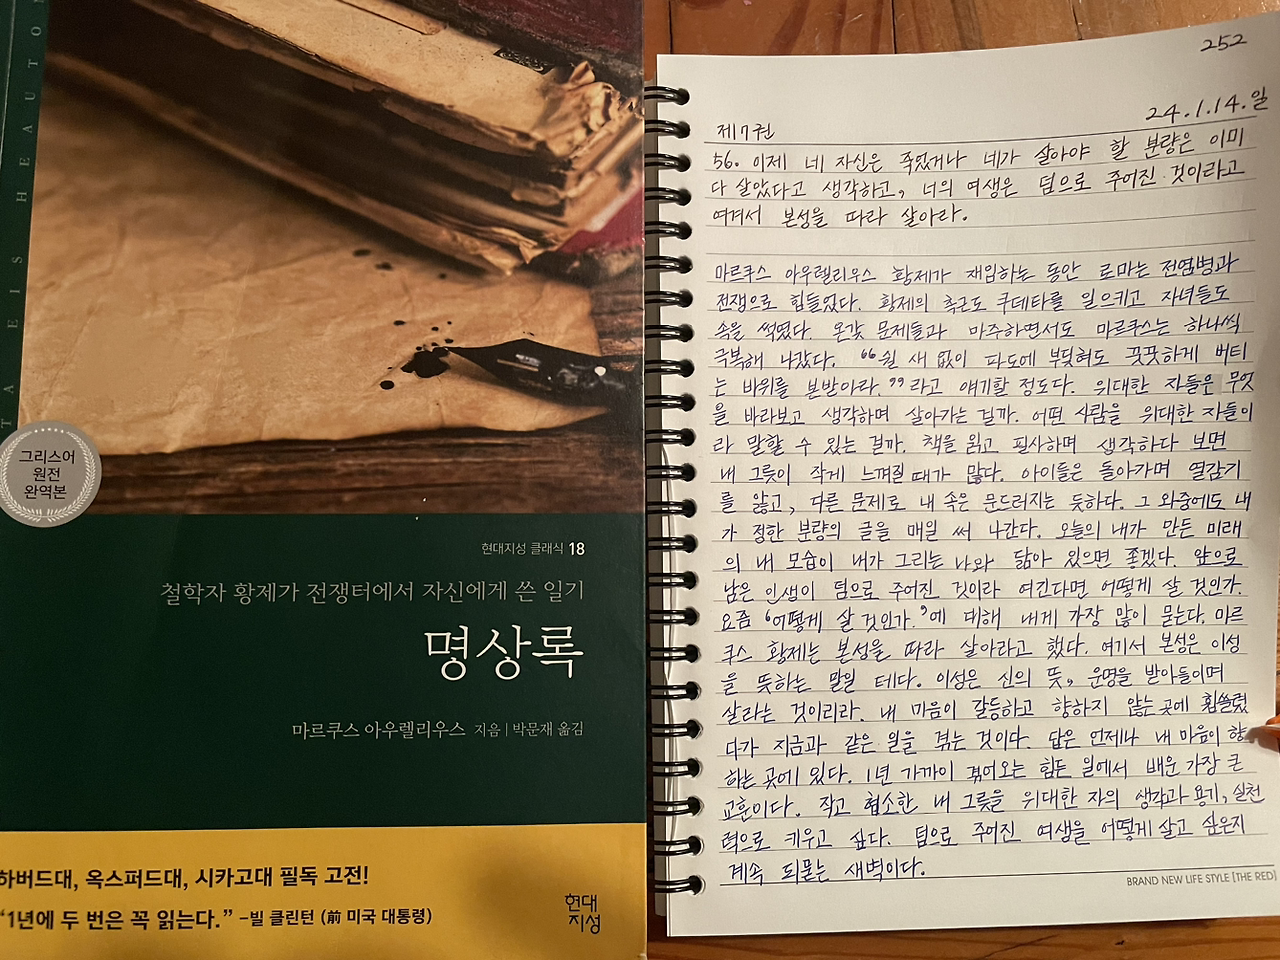 TA EIS HEAUTON
그리스어
원전
완역본
현대지성 클래식 18
철학자 황제가 전쟁터에서 자신에게 쓴 일기
명상록
마르쿠스 아우렐리우스 지음 | 박문재 옮김
하버드대, 옥스퍼드대, 시카고대 필독 고전!
“1년에 두 번은 꼭 읽는다.” –빌 클린턴 (前 미국 대통령)
현대
지성
252
24.1.14.일
제7권
56. 이제 네 자신은 죽었거나 네가 살아야 할 분량은 이미
다 살았다고 생각하고, 너의 여생은 덤으로 주어진 것이라고
여겨서 본성을 따라 살아라.
마르쿠스 아우렐리우스 황제가 재임하는 동안 로마는 전염병과
전쟁으로 힘들었다. 황제의 측근도 쿠데타를 일으키고 자녀들도
속을 썩였다. 온갖 문제들과 마주하면서도 마르쿠스는 하나씩
극복해 나갔다. “쉴 새 없이 파도에 부딪혀도 꿋꿋하게 버티
는 바위를 본받아라.”라고 얘기할 정도다. 위대한 자들은 무엇
을 바라보고 생각하며 살아가는 걸까. 어떤 사람을 위대한 자들이
라 말할 수 있는 걸까. 책을 읽고 필사하며 생각하다 보면
내 그릇이 작게 느껴질 때가 많다. 아이들은 돌아가며 열감기
를 앓고, 다른 문제로 내 속은 문드러지는 듯하다. 그 와중에도 내
가 정한 분량의 글을 매일 써 나간다. 오늘의 내가 만든 미래
의 내 모습이 내가 그리는 나와 닮아 있으면 좋겠다. 앞으로
남은 인생이 덤으로 주어진 것이라 여긴다면 어떻게 살 것인가.
요즘 ‘어떻게 살 것인가.’에 대해 내게 가장 많이 묻는다. 마르
쿠스 황제는 본성을 따라 살아라고 했다. 여기서 본성은 이성
을 뜻하는 말일 테다. 이성은 신의 뜻, 운명을 받아들이며
살라는 것이리라. 내 마음이 갈등하고 향하지 않는 곳에 휩쓸렸
다가 지금과 같은 일을 겪는 것이다. 답은 언제나 내 마음이 향
하는 곳에 있다. 1년 가까이 겪어오는 힘든 일에서 배운 가장 큰
교훈이다. 작고 협소한 내 그릇을 위대한 자의 생각과 용기, 실천
력으로 키우고 싶다. 덤으로 주어진 여생을 어떻게 살고 싶은지
계속 되묻는 새벽이다.
BRAND NEW LIFE STYLE [THE RED]